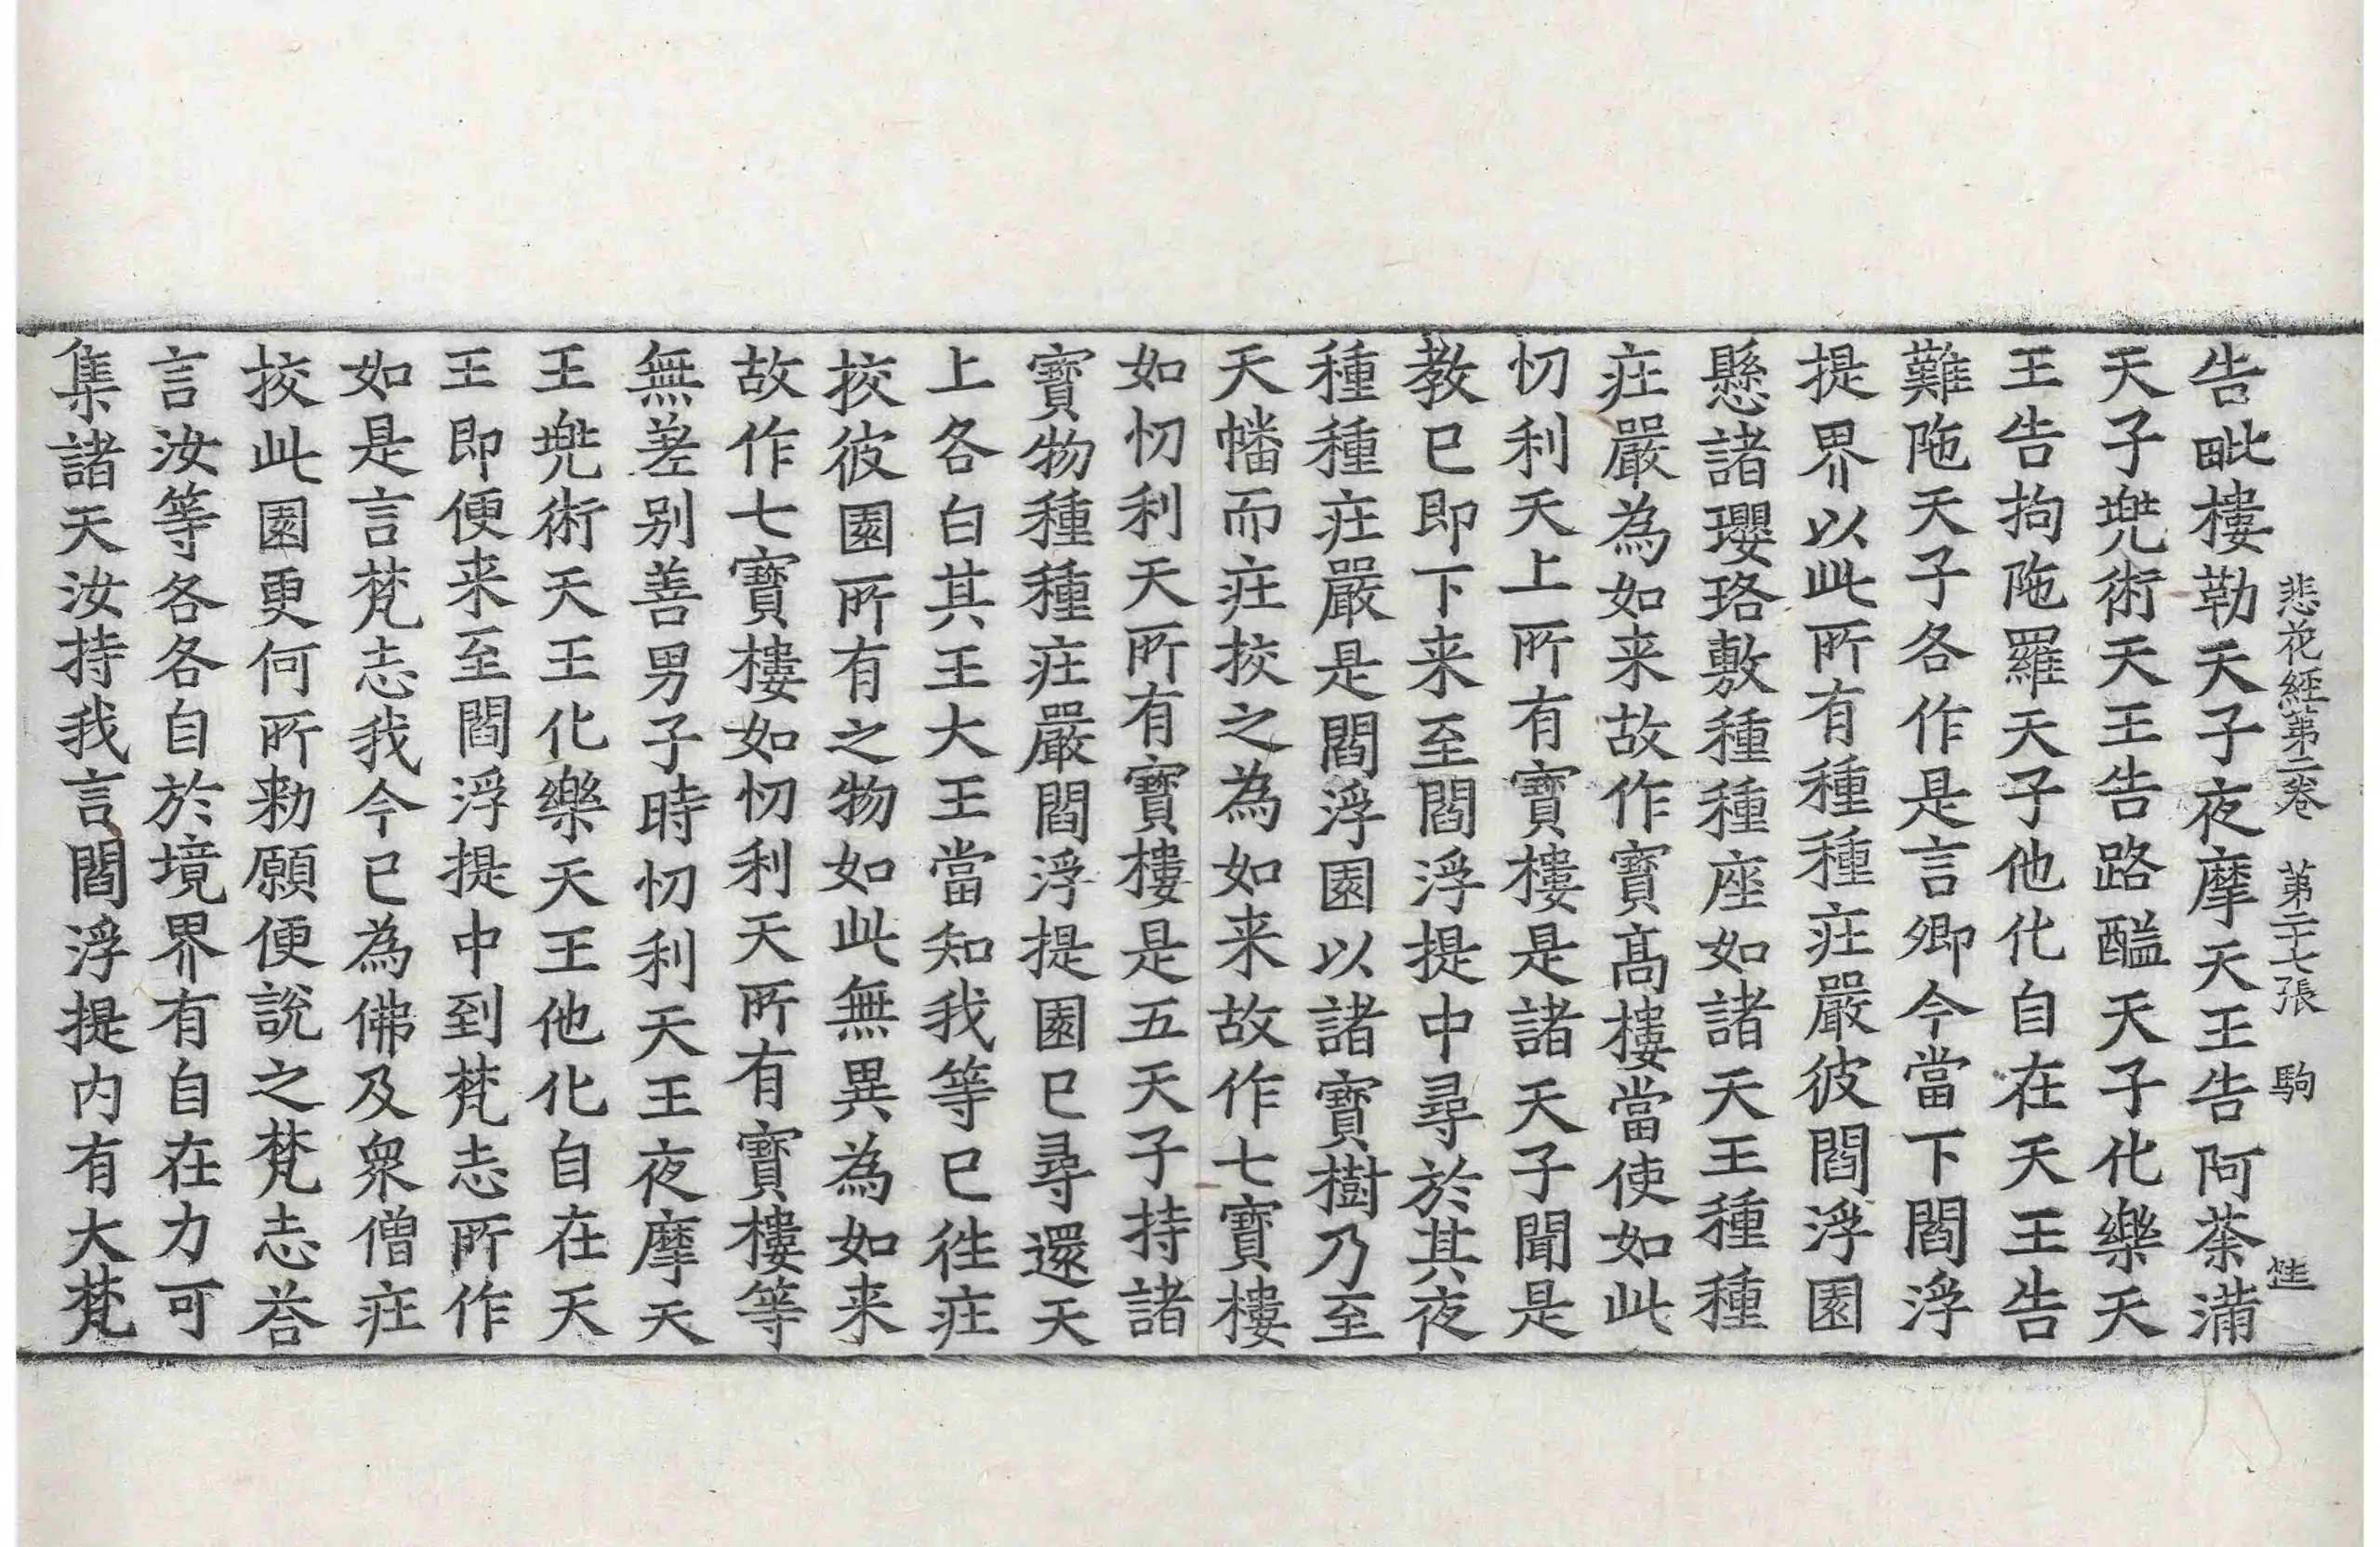 悲花経第二卷　第二十七張　駒
告毗樓勒天子夜摩天王告阿荼滿
天子兠術天王告路醯天子化樂天
王告拘陁羅天子他化自在天王告
難陁天子各作是言卿今當下閻浮
提界以此所有種種莊嚴彼閻浮園
懸諸瓔珞敷種種座如諸天王種種
莊嚴為如来故作寶髙樓當使如此
忉利天上所有寶樓是諸天子聞是
教已即下来至閻浮提中尋於其夜
種種莊嚴是閻浮園以諸寶樹乃至
天幡而莊挍之為如来故作七寶樓
如忉利天所有寶樓是五天子持諸
寶物種種莊嚴閻浮提園已尋還天
上各白其王大王當知我等已徃莊
挍彼園所有之物如此無異為如来
故作七寶樓如忉利天所有寶樓等
無差别善男子時忉利天王夜摩天
王兠術天王化樂天王他化自在天
王即便来至閻浮提中到梵志所作
如是言梵志我今已為佛及衆僧莊
挍此園更何所勑願便說之梵志荅
言汝等各各自於境界有自在力可
集諸天汝持我言閻浮提内有大梵